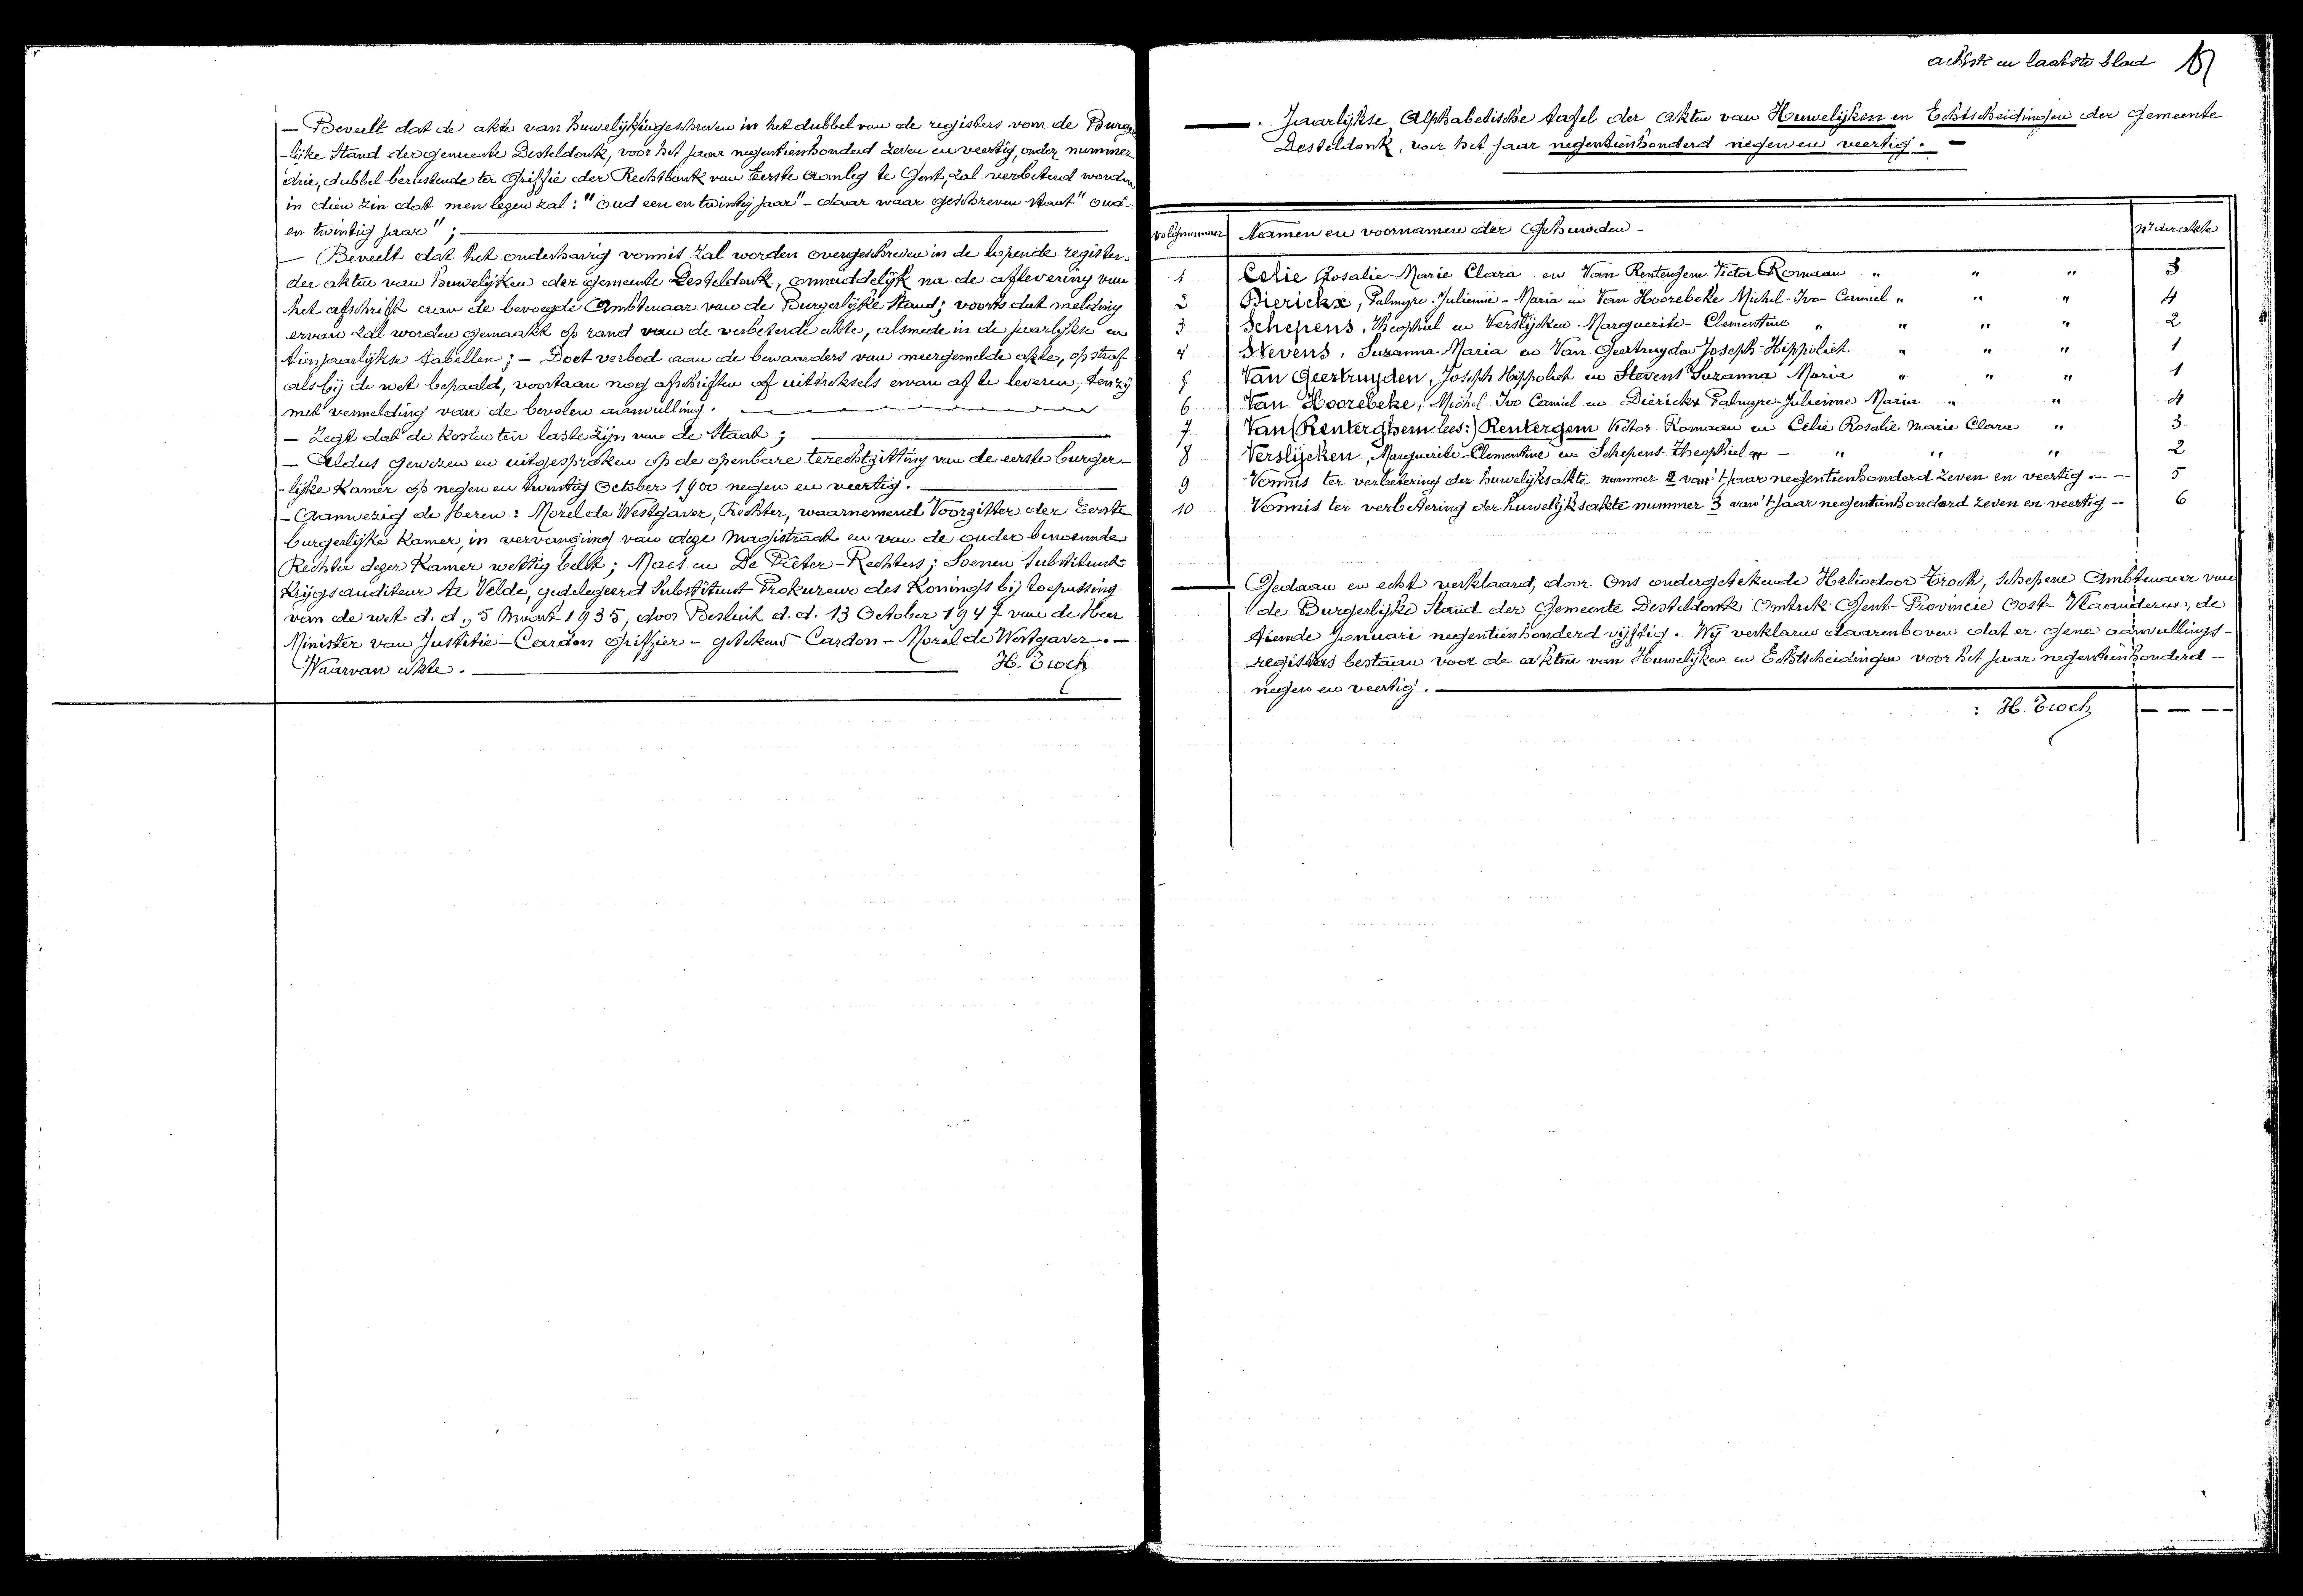 — Beveelt dat de akte van huwelijk ingeschreven in het dubbel van de registers van de Burger
-lijke Stand der gemeente Desteldonk, voor het jaar negentienhonderd zeven en veertig, onder nummer
drie, dubbel berustende ter Griffie der Rechtbank van Eerste Aanleg te Gent, zal verbeterd worden
in dien zin dat men lezen zal: "oud een en twintig jaar" - daar waar geschreven staat "oud-
en twintig jaar";
— Beveelt dat het onderhavig vonnis zal worden overgeschreven in de lopende registers
der akten van huwelijken der gemeente Desteldonk, onmiddelijk na de aflevering van
het afschrift aan de bevoegde Ambtenaar van de Burgerlijke Stand; voorts dat melding
ervan zal worden gemaakt op rand van de verbeterde akte, alsmede in de jaarlijkse en
tienjaarlijkse tabellen; — Doet verbod aan de bewaarders van meergemelde akte, op straf
als bij de wet bepaald, voortaan nog afschriften of uittreksels ervan af te leveren, tenzij
met vermelding van de bevolen aanvulling.
— Zegt dat de kosten ten laste zijn van de Staat;
— Aldus gewezen en uitgesproken op de openbare terechtzitting van de eerste burger-
-lijke Kamer op negen en twintig October 1900 negen en veertig.
— Aanwezig de Heren: Morel de Westgaver, Rechter, waarnemend Voorzitter der Eerste
burgerlijke Kamer, in vervanging van deze Magistraat en van de ouder benoemde
Rechter dezer Kamer wettig belet; Maes en De Pêeter - Rechters; Soenen Substituut-
Krijgsauditeur Te Velde, gedelegeerd Substituut Prokureur des Konings bij toepassing
van de wet d.d., 5 Maart 1935, door Besluit d.d. 13 October 1947 van de Heer
Minister van Justitie — Cardon griffier — getekend Cardon — Morel de Westgaver. —
Waarvan akte. H. Troch
achtste en laatste blad
. Jaarlijkse Alphabetische tafel der akten van Huwelijken en Echtscheidingen der Gemeente
Desteldonk, voor het jaar negentienhonderd negen en veertig. —
volgnummer Namen en voornamen der Gehuwden - nr der akte
1 Celie Rosalie-Marie Clara en Van Rentergem Victor Romaan " " " 3
2 Dierickx, Palmyre-Julienne-Maria en Van Hoorebeke Michel-Ivo-Camiel " " " 4
3 Schepens, Theophiel en Verslijcken Marguerite-Clementine " " " " 2
4 Stevens, Suzanna Maria en Van Geertruyden Joseph-Hippoliet " " " 1
5 Van Geertruyden, Joseph Hippoliet en Stevens Suzanna Maria " " " 1
6 Van Hoorebeke, Michel Ivo Camiel en Dierickx Palmyre-Julienne Maria " " 4
7 Van (Renterghem lees:) Rentergem Victor Romaan en Celie Rosalie Marie Clara " 3
8 Verslijcken, Marguerite-Clementine en Schepens-Theophiel — " " " 2
9 Vonnis ter verbetering der huwelijksakte nummer 2 van 't jaar negentienhonderd zeven en veertig. — 5
10 Vonnis ter verbetering der huwelijksakte nummer 3 van 't jaar negentienhonderd zeven en veertig — 6
Gedaan en echt verklaard, door Ons ondergetekende Heliodoor Troch, Schepene Ambtenaar van
de Burgerlijke Stand der Gemeente Desteldonk Omtrek Gent-Provincie Oost-Vlaanderen, de
tiende Januari negentienhonderd vijftig. Wij verklaren daarenboven dat er gene aanvullings-
registers bestaan voor de akten van Huwelijken en Echtscheidingen voor het jaar negentienhonderd —
negen en veertig.
: H. Troch